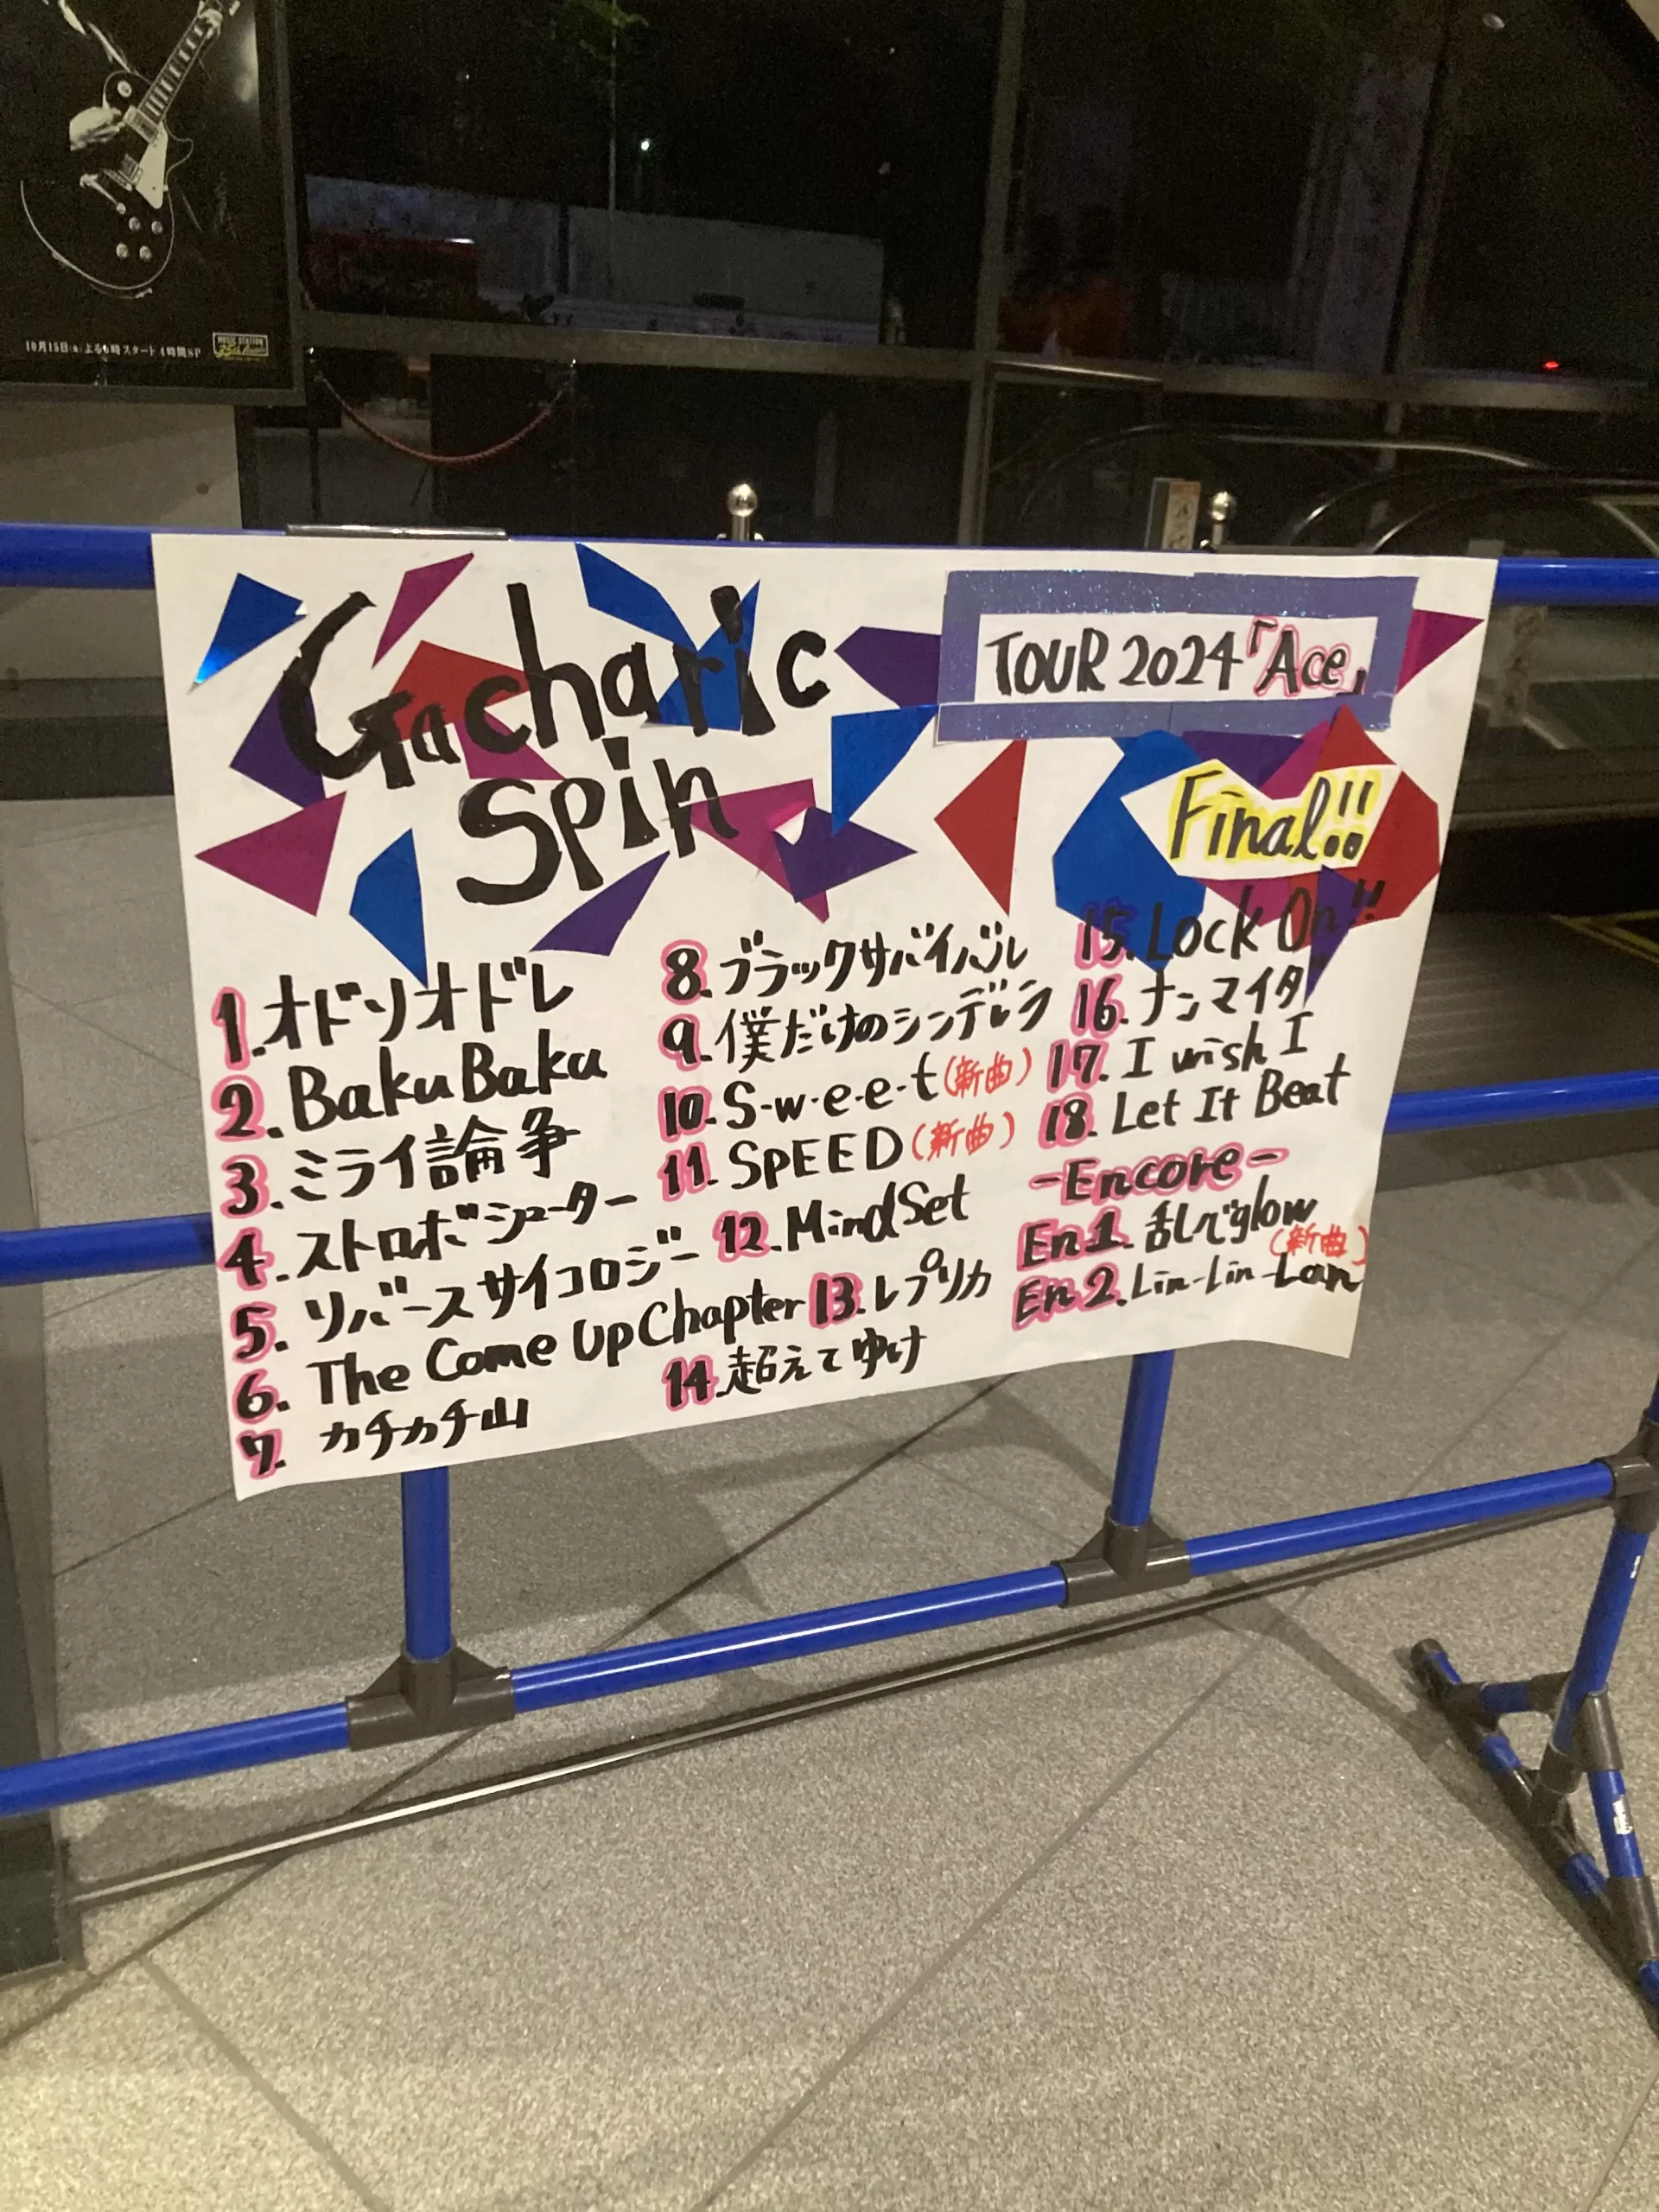 10月15日(金)よる6時スタート4時間SP
MUSIC STATION
35th
Gacharic
Spin
TOUR 2024「Ace」
Final!!
1. オドリオドレ
2. BakuBaku
3. ミライ論争
4. ストロボシューター
5. リバースサイコロジー
6. The Come Up Chapter
7. カチカチ山
8. ブラックサバイバル
9. 僕だけのシンデレラ
10. S-w-e-e-t(新曲)
11. SPEED(新曲)
12. MindSet
13. レプリカ
14. 超えてゆけ
15. Lock On!!
16. ナンマイダ
17. I wish I
18. Let It Beat
-Encore-
En1. 乱んでglow
(新曲)
En2. Lin-Lin-Lan